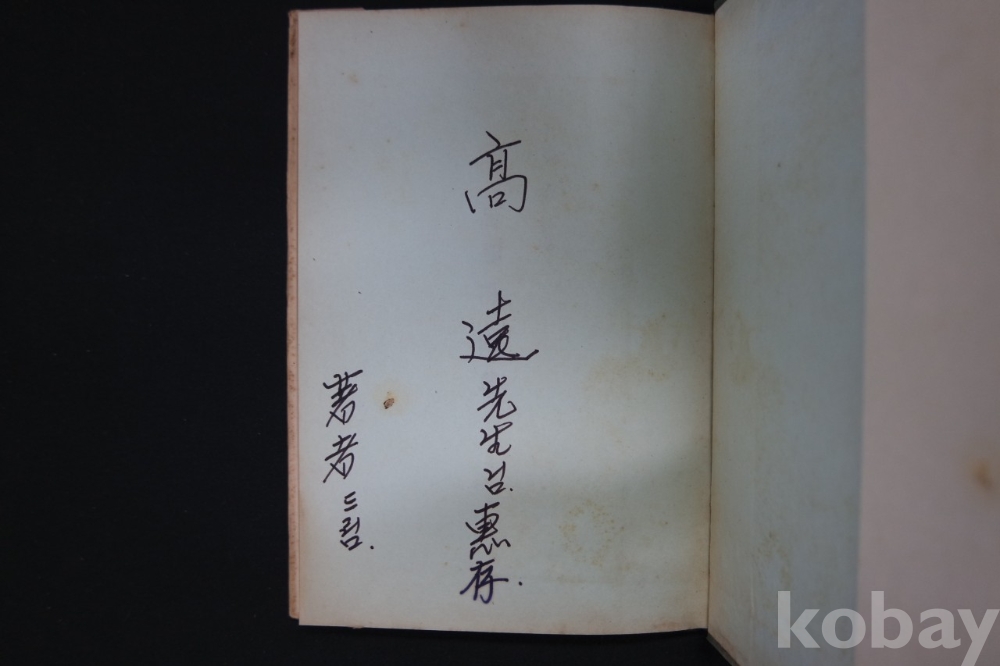 高 遠 先生님 惠存.
著者 드림.
kobay